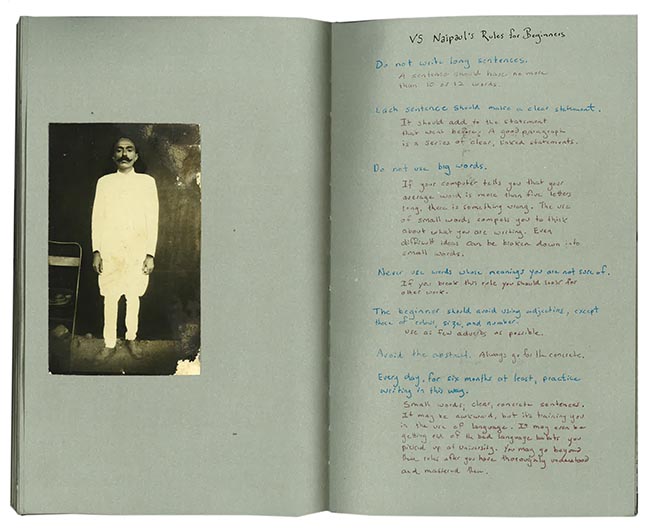 VS Naipaul's Rules for Beginners
Do not write long sentences.
A sentence should have no more
than 10 or 12 words.
Each sentence should make a clear statement.
It should add to the statement
that went before. A good paragraph
is a series of clear, linked statements.
Do not use big words.
If your computer tells you that your
average word is more than five letters
long, there is something wrong. The use
of small words compels you to think
about what you are writing. Even
difficult ideas can be broken down into
small words.
Never use words whose meanings you are not sure of.
If you break this rule you should look for
other work.
The beginner should avoid using adjectives, except
those of colour, size, and number.
Use as few adverbs as possible.
Avoid the abstract. Always go for the concrete.
Every day, for six months at least, practice
writing in this way.
Small words; clear, concrete sentences.
It may be awkward, but it's training you
in the use of language. It may even be
getting rid of the bad language habits you
picked up at university. You may go beyond
these rules after you have thoroughly understood
and mastered them.